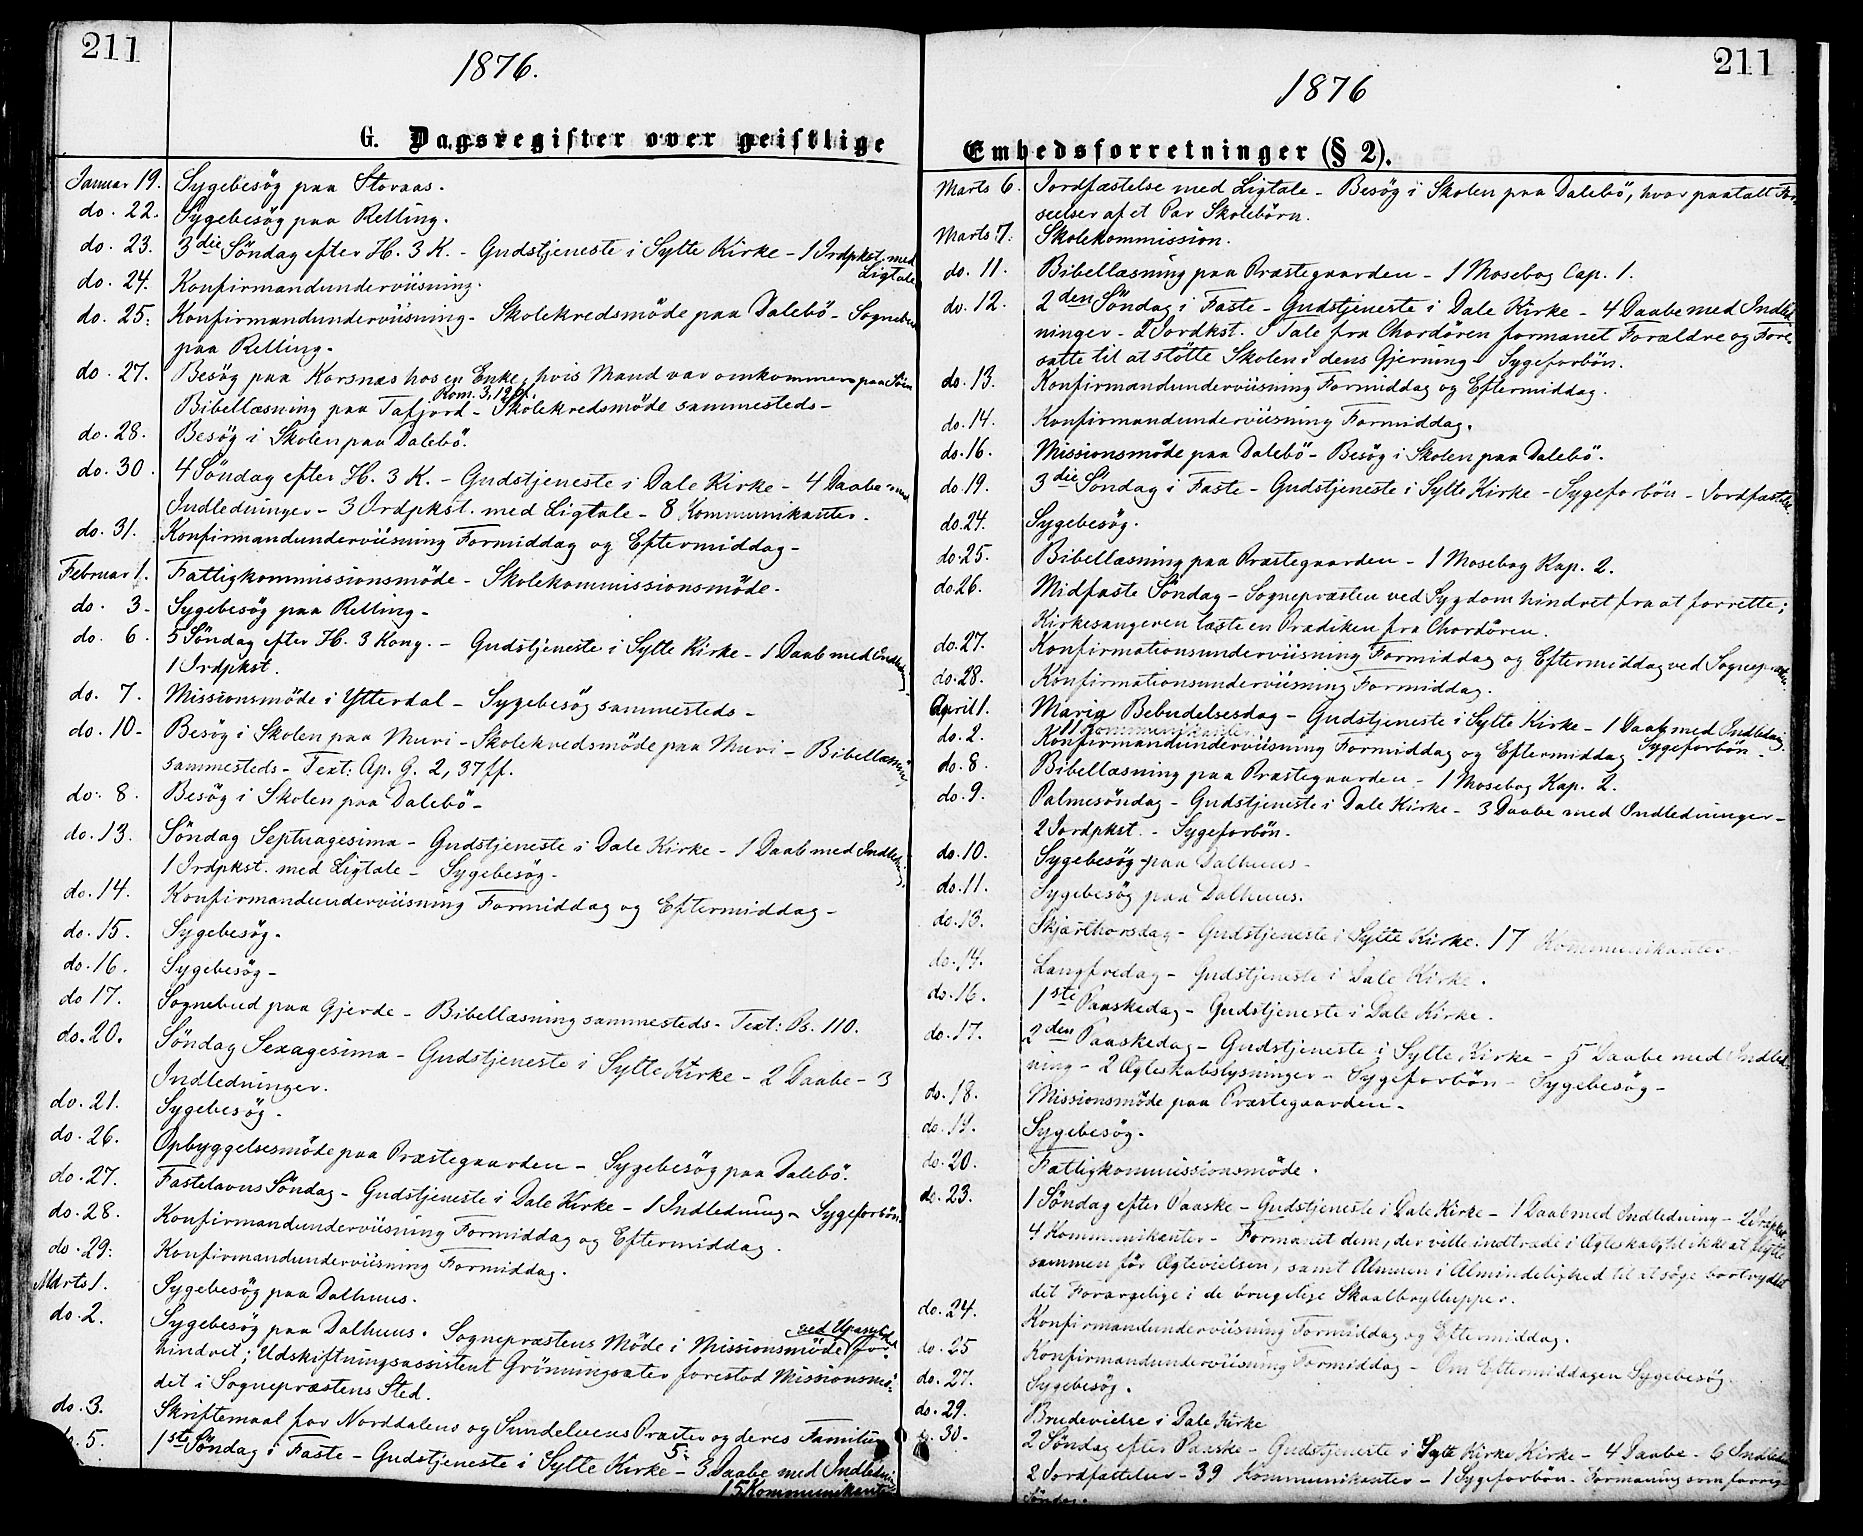 211
1876.
G. Dagsregister over geistlige
Januar 19. Sygebesög paa Storaas.
do. 22. Sygebesög paa Relling.
do. 23. 3die Söndag efter H. 3 K. - Gudstjeneste i Sylte Kirke - 1 Jrdpkst. med
Ligtale
do. 24. Konfirmandunderviisning.
do. 25. Konfirmandunderviisning. Skolekredsmöde paa Dalebö - Sognebud
paa Relling.
do. 27. Besög paa Korsnæs hos en Enke, hvis Mand var omkommen paa Söen
Rom. 3, 19 ff.
Bibellæsning paa Tafjord - Skolekredsmöde sammesteds -
do. 28. Besög i Skolen paa Dalebö.
do. 30. 4 Söndag efter H. 3 K. - Gudstjeneste i Dale Kirke - 4 Daabe med
Indledninger - 3 Jrdpkst. med Ligtale - 8 Kommunikanter.
do. 31. Konfirmandunderviisning Formiddag og Eftermiddag -
Februar 1. Fattigkommissionsmöde - Skolekommissionsmöde.
do. 3. Sygebesög paa Relling -
do. 6. 5 Söndag efter H. 3 Kong. - Gudstjeneste i Sylte Kirke - 1 Daab med Indledning
1 Jrdpkst.
do. 7. Missionsmöde i Ytterdal - Sygebesög sammesteds -
do. 10. Besög i Skolen paa Muri - Skolekredsmöde paa Muri - Bibellæsning
sammesteds - Text: Ap. G. 2, 37 ff.
do. 8. Besög i Skolen paa Dalebö -
do. 13. Söndag Septuagesima - Gudstjeneste i Dale Kirke - 1 Daab med Indledning.
1 Jrdpkst. med Ligtale - Sygebesög -
do. 14. Konfirmandunderviisning Formiddag og Eftermiddag -
do. 15. Sygebesög.
do. 16. Sygebesög -
do 17. Sognebud paa Gjerde - Bibellæsning sammesteds - Text: Ps. 110.
do. 20. Söndag Sexagesima - Gudstjeneste i Sylte Kirke - 2 Daabe - 3
Indledninger.
do. 21. Sygebesög.
do. 26. Opbyggelsesmöde paa Præstegaarden - Sygebesög paa Dalebö.
do. 27. Fastelavns Söndag - Gudstjeneste i Dale Kirke - 1 Indledning - Sygeforbön.
do. 28. Konfirmandunderviisning Formiddag og Eftermiddag.
do. 29. Konfirmandunderviisning Formiddag.
Marts 1. Sygebesög paa Dalhuus.
do. 2. Sygebesög paa Dalhuus. Sognepræstens Möde i Missionsmöde
hindret; Udskiftningsassistent Grönningsæter forestod Missionsmö-
det i Sognepræstens Sted.
do. 3. Skriftemaal for Norddalens og Sundelvens Præster og deres Familier
do. 5. 1ste Söndag i Faste - Gudstjeneste i Sylte Kirke - 3 Daabe med 5 Indledninger
15 Kommunikanter
211
1876
Embedsforretninger (§ 2).
Marts 6. Jordfæstelse med Ligtale - Besög i Skolen paa Dalebö, hvor paatalt For-
seelser af et Par Skolebörn.
Marts 7. Skolekommission.
do. 11. Bibellæsning paa Præstegaarden - 1 Mosebog Cap. 1.
do. 12. 2den Söndag i Faste - Gudstjeneste i Dale Kirke - 4 Daabe med Indled-
ninger - 2 Jordkst. I Tale fra Chordören formanet Forældre og Fore-
satte til at stötte Skolen i dens Gjerning - Sygeforbön.
do. 13. Konfirmandunderviisning Formiddag og Eftermiddag.
do. 14. Konfirmandunderviisning Formiddag.
do. 16. Missionsmöde paa Dalebö - Besög i Skolen paa Dalebö.
do. 19. 3die Söndag i Faste - Gudstjeneste i Sylte Kirke - Sygeforbön - Jordfæstelse.
do. 24. Sygebesög.
do. 25. Bibellæsning paa Præstegaarden - 1 Mosebog Kap. 2.
do. 26. Midfaste Söndag - Sognepræsten ved Sygdom hindret fra at forrette;
Kirkesangeren læste en Prædiken fra Chordören.
do. 27. Konfirmationsunderviisning Formiddag og Eftermiddag ved Sognepræsten.
do. 28. Konfirmationsunderviisning Formiddag.
April 1. Mariæ Bebudelsesdag - Gudstjeneste i Sylte Kirke - 1 Daab med Indledning.
11 Kommunikanter. Sygeforbön -
do. 2. Konfirmandunderviisning Formiddag og Eftermiddag
do. 8. Bibellæsning paa Præstegaarden - 1 Mosebog Kap. 2.
do. 9. Palmesöndag - Gudstjeneste i Dale Kirke - 3 Daabe med Indledninger -
2 Jordpkst. - Sygeforbön.
do. 10. Sygebesög paa Dalhuus -
do. 11. Sygebesög paa Dalhuus.
do. 13. Skjærthorsdag - Gudstjeneste i Sylte Kirke. 17 Kommunikanter.
do. 14. Langfredag - Gudstjeneste i Dale Kirke.
do. 16. 1ste Paaskedag - Gudstjeneste i Dale Kirke.
do. 17. 2den Paaskedag - Gudstjeneste i Sylte Kirke - 5 Daabe med Indled-
ning - 2 Ægteskabslysninger - Sygeforbön - Sygebesög -
do. 18. Missionsmöde paa Præstegaarden -
do. 19. Sygebesög.
do. 20. Fattigkommissionsmöde.
do. 23. 1 Söndag efter Paaske - Gudstjeneste i Dale Kirke - 1 Daab med Indledning - 2 Jrdpkst.
4 Kommunikanter - Formanet dem, der ville indtræde i Ægteskab, til ikke at flytte
sammen för Ægtevielsen, samt Almuen i Almindelighed til at söge bortryddet
det Forargelige i de brugelige Skaalbrylluper.
do. 24. Konfirmandunderviisning Formiddag og Eftermiddag.
do. 25 Konfirmandunderviisning Formiddag - Om Eftermiddagen Sygebesög.
do. 27. Sygebesög.
do. 29. Brudevielse i Dale Kirke
do. 30. 2 Söndag efter Paaske - Gudstjeneste i Sylte Kirke Kirke - 4 Daabe - 6 Indledn.
2 Jordfæstelser - 39 Kommunikanter - 1 Sygeforbön - Formaning som forrige
Söndag.